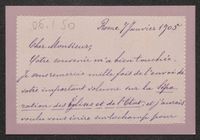 06.1.50
Rome, 7 Janvier 1905
Cher Monsieur,
Votre souvenir m'a bien touché.
Je vous remercie mille fois de l'envoi de
votre important volume sur la Sépa-
ration des Églises et de l'État, et j'aurais
voulu vous écrire sur le champ pour